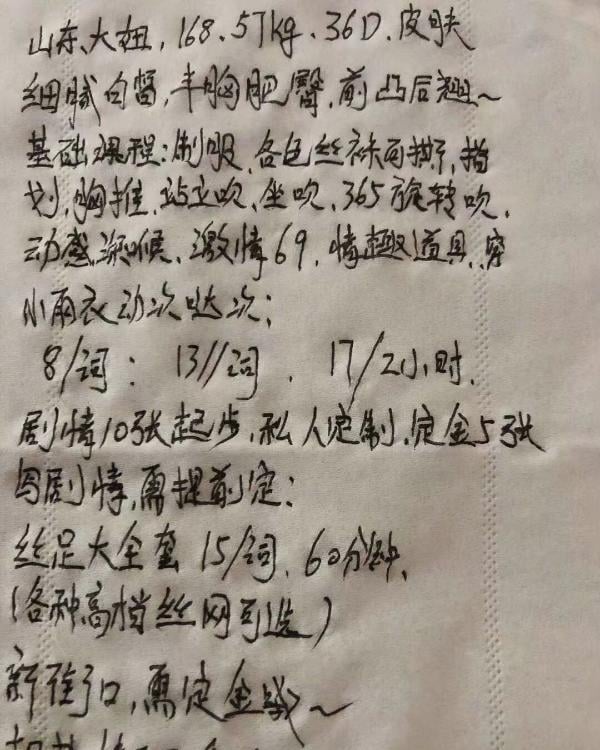 山东、大妞，168.57kg、36D.皮肤
细腻白皙，丰胸肥臀，前凸后翘~
基础课程：制服、各色丝袜可撕，指
划，胸推、站立吹、坐吹、365旋转吹、
动感深喉、激情69，情趣道具，穿
小雨衣动次哒次；
8/词：13//词．17/2小时．
剧情10张起步、私人定制．定金5张
写剧情，需提前定：
丝足大全套 15/词、60分钟、
（各种高档丝网可选）
新街口，需定金哦~